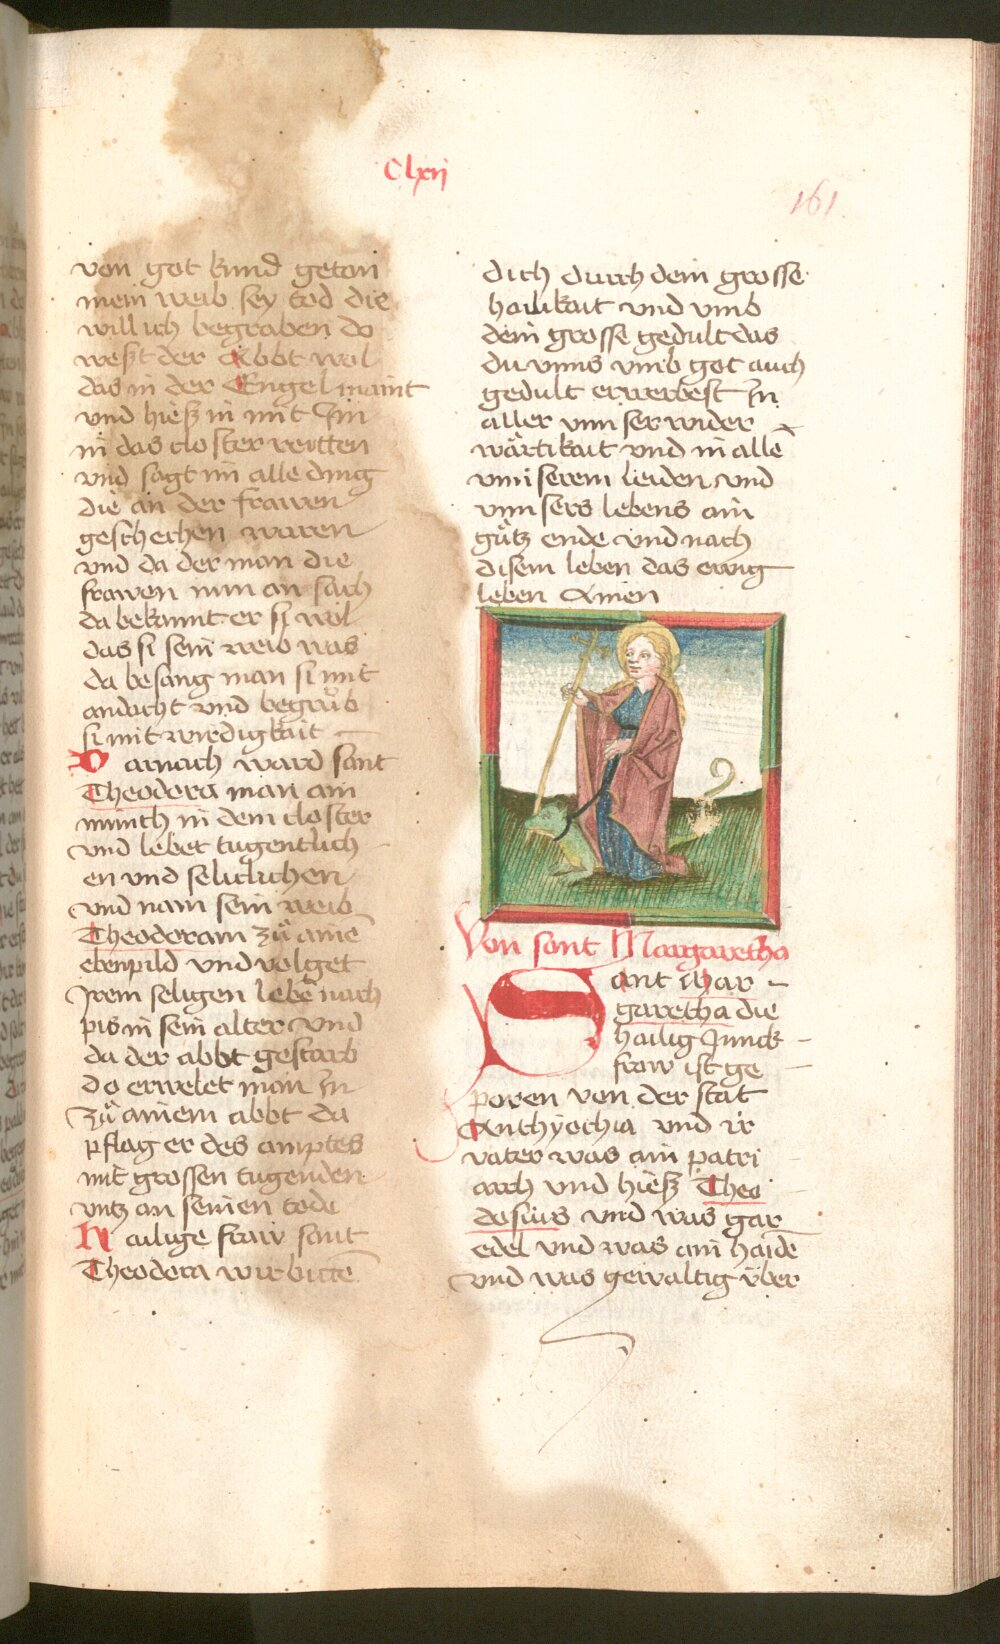 Clxij
161
von got kund geton
mein weib sey tod die
will ich begraben do
weszt der Abbt wol
das in der Engel maint
vnd hiesz in mit Im
in das closter reitten
vnd sagt im alle ding
die an der frawen
geschechen waren
vnd da der man die
frawen nun an sach
da bekannt er sy wol
das si sein weib was
da besang man si mit
andacht vnd begrůb
si mit wirdigkait
Darnach ward sant
Theodora man ain
münch in dem closter
vnd lebet tugentlich
en vnd seliclichen
vnd nam sein weib
Theodoram zů ainē
ebenpild vnd volget
Irem seligen lebē nach
pis in sein alter vnd
da der abbt gestarb
do erwelet man In
zů ainem abbt da
pflag er des amptes
mit grossen tugenden
vntz an seinen tode
Hailige fraw sant
Theodora wir bittē
dich durch dein grosse
hailikait vnd vmb
dein grosse gedult das
du vnns vmb got auch
gedult erwerbest In
aller vnnser wider
wärtikait vnd in allē
vnnserem leiden vnd
vnnsers lebens ain
gůtz ende vnd nach
disem leben das ewig
leben Amen
Von sant Margaretha
Sant Mar-
garetha die
hailig Junck-
fraw ist ge
poren von der stat
Anthyochia vnd ir
vater was ain patri
arch vnd hiesz Theo
dosius vnd was gar
edel vnd was ain haidē
vnd was gewaltig über